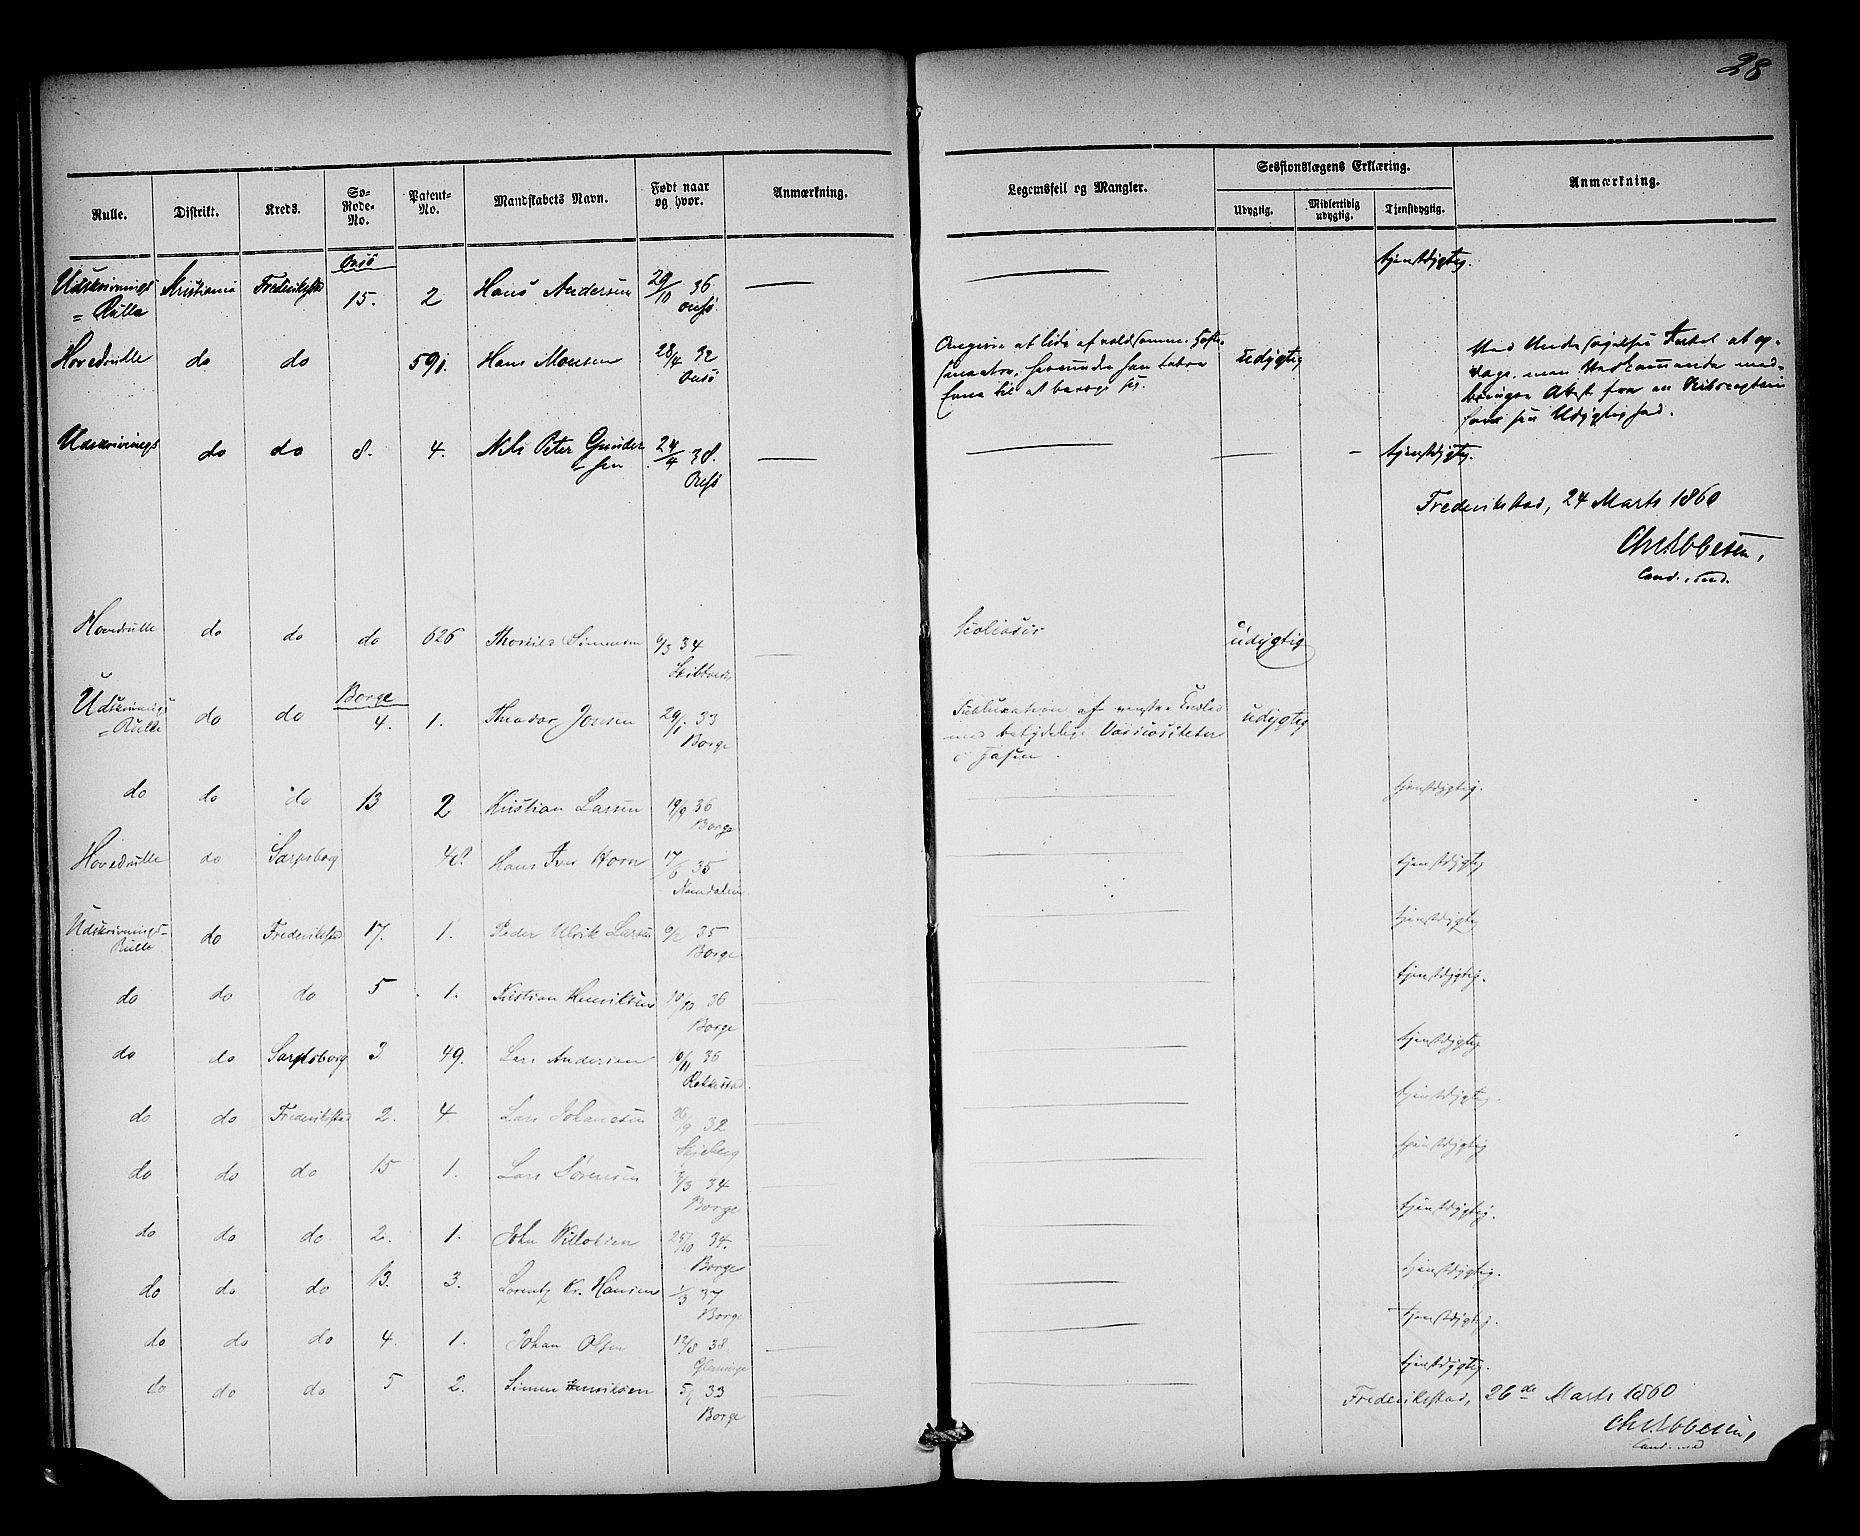 28
Rulle. Distrikt. Kreds. So-Rode-No. Patent-No. Mandskabets Navn. Født naar og hvor. Anmærkning. Legemsfeil og Mangler. Sessionslægens Erklæring. Anmærkning.
Udygtig. Midlertidig udygtig. Tjenstdygtig.
Onsö
Udskrivnings Kristiania Frederikstad 15. 2 Hans Andersen 29/10 36 — tjenstdygtig.
= Rulle Onsö.
Hovedrulle do do 591. Hans Monsen 28/4 32 Angiver at lide af voldsomme udygtig Ved
Onsö
til at bevæge sig. fra en
for sin Udygtighed.
Udskrivnings do do 8. 4. Nils Peter Gunder 24/4 38. — — — tjenstdygtig.
sen Onsö
Frederikstad, 24 Marts 1860
Chr Ebbesen,
Cand. med.
Hovedrulle do do do 626 Simensen 6/3 34 Scoliosis udygtig
Borge
Udskrivnings do do 4. 1. Theodor Jensen 29/1 33 Subluxation af venstre udygtig
= Rulle Borge med betydelige Varicositeter
i
do do do 13 2 Kristian Larsen 19/9 36 tjenstdygtig.
Borge
Hovedrulle do Sarpsborg 48. Hans Iver Horn 17/6 35 tjenstdygtig
Namdalen
Udskrivnings- do Frederikstad 17. 1. Peder Ulrik Larsen 6/2 35 tjenstdygtig
Rulle Borge
do do do 5 1. Kristian Henriksen 10/10 36 tjenstdygtig.
Borge
do do Sarpsborg 3 49. Lars Andersen 10/11 36 tjenstdygtig
Rakkestad.
do do Frederikstad 2. 4. Lars Johanesen 16/9 32 tjenstdygtig.
Skjeberg
do do do 15 1. Lars Sørensen 7/3 34 tjenstdygtig
Borge
do do do 2. 1. John 25/10 34. tjenstdygtig.
Borge
do do do 13. 3. Lorentz Kr. Hansen 1/3 37 tjenstdygtig.
Borge
do do do 4. 1. Johan Olsen 12/8 38 tjenstdygtig.
Glemminge
do do do 5 2. Simen Henriksen 5/1 33 tjenstdygtig.
Borge
Frederikstad, 26de Marts 1860
Chr Ebbesen,
Cand. med